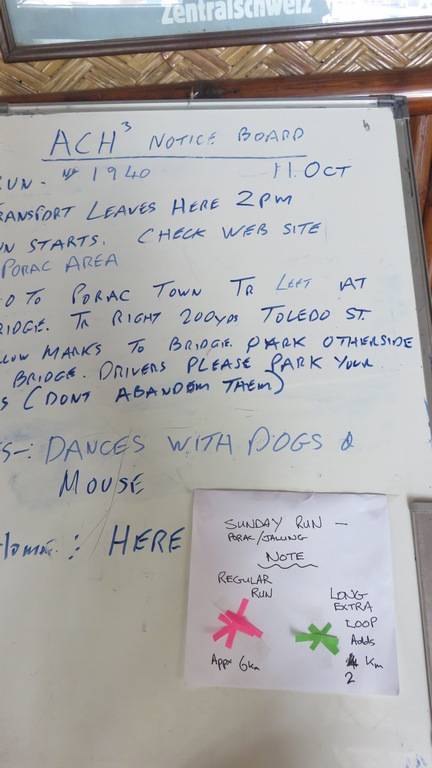 Zentralschweiz
ACH³ NOTICE BOARD
RUN - Nº 1940 11. OCT
TRANSPORT LEAVES HERE 2PM
UN STARTS. CHECK WEB SITE
PORAC AREA
O TO PORAC TOWN TR LEFT AT
RIDGE. TR RIGHT 200yds TOLEDO ST.
LLOW MARKS TO BRIDGE PARK OTHERSIDE
BRIDGE. DRIVERS PLEASE PARK YOUR
S (DONT ABANDOM THEM)
S-: DANCES WITH DOGS &
MOUSE
: HERE
SUNDAY RUN -
PORAC/JALUNG
NOTE
REGULAR RUN
LONG EXTRA LOOP
Adds
2 Km
Appx 6km